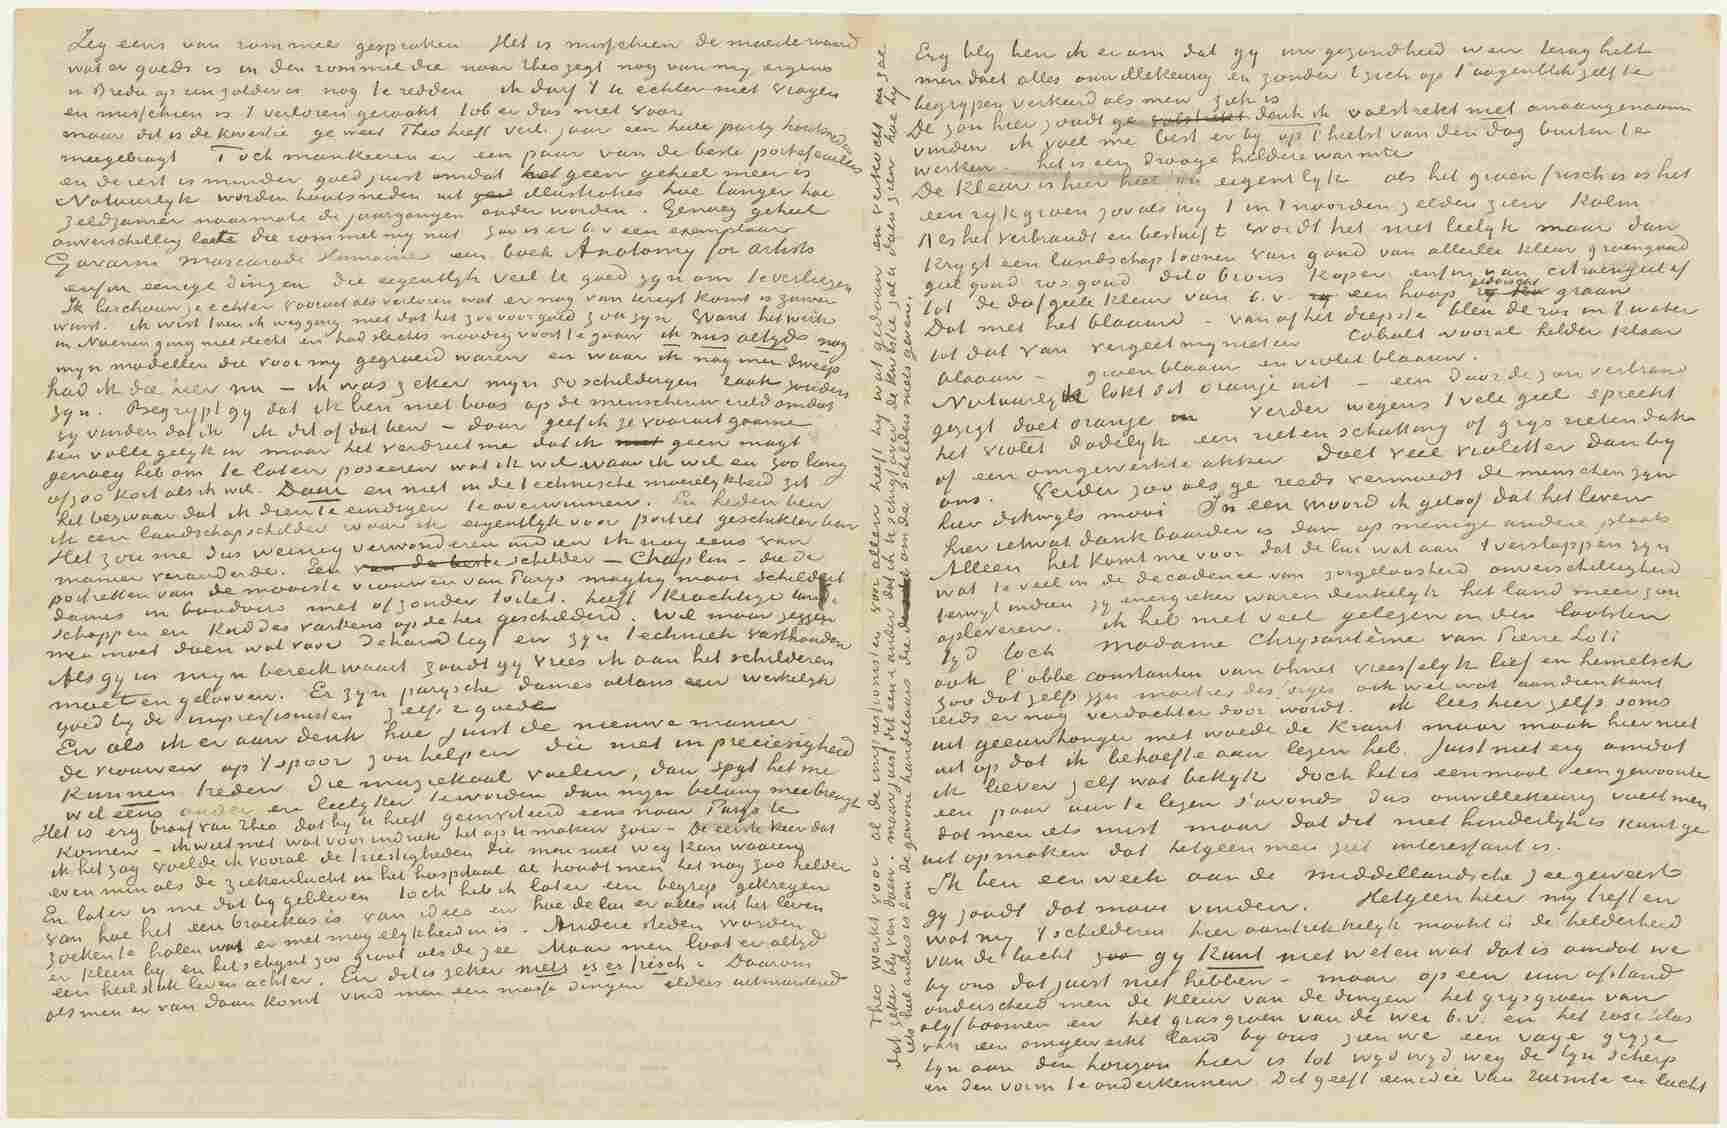 Zeg eens van rommel gesproken Het is misschien de moeite waard
wat er goeds is in den rommel die naar Theo zegt nog van mij ergens
in Breda op een zolder is nog te redden ik durf 't U echter niet vragen
en misschien is 't verloren geraakt tob er dus niet voor
maar dit is de kwestie ge weet Theo heeft verl. jaar een heele partij houtsneden
meegebragt Toch mankeeren er een paar van de beste portefeuilles
en de rest is minder goed juist omdat het geen geheel meer is
Natuurlijk worden houtsneden uit illustraties hoe langer hoe
zeldzamer naarmate de jaargangen ouder worden. Genoeg geheel
onverschillig laat die rommel mij niet zoo is er b.v. een exemplaar
Gavarni Mascarade Humaine een boek Anatomy for artists
enfin eenige dingen die eigentlijk veel te goed zijn om te verliezen
Ik beschouw ze echter vooruit als verloren wat er nog van teregt komt is zuiver
winst. ik wist toen ik wegging niet dat het zoo voorgoed zou zijn. Want het werk
in Nuenen ging niet slecht en had slechts noodig voort te gaan ik mis altijd nog
mijn modellen die voor mij gegroeid waren en waar ik nog mee dweep
had ik die hier nu – ik was zeker mijn 50 schilderijen raak zouden
zijn. Begrijpt gij dat ik ben niet boos op de menschenwereld omdat
zij vinden dat ik ik dit of dat ben – daar geef ik ze vooruit gaarne
ten volle gelijk in maar het verdriet me dat ik niet geen magt
genoeg heb om te laten poseeren wat ik wil waar ik wil en zoo lang
of zoo kort als ik wil. Daar en niet in de technische moeielijkheid zit
het bezwaar dat ik dien te eindigen te overwinnen. En heden ben
ik een landschapschilder waar ik eigentlijk voor portret geschikter ben
Het zou me dus weinig verwonderen indien ik nog eens van
manier veranderde. Een van de beste schilder – Chaplin – die de
portretten van de mooiste vrouwen van Parijs magtig mooi schildert
dames in boudoirs met of zonder toilet. heeft krachtige land-
schappen en kuddes varkens op de hei geschilderd. Wil maar zeggen
men moet doen wat voor de hand ligt en zijn techniek vasthouden
Als gij in mijn bereik waart zoudt gij vrees ik aan het schilderen
moeten gelooven. Er zijn parijsche dames althans een werkelijk
goed bij de impressionisten zelfs 2 goede
En als ik er aan denk hoe juist de nieuwe manier
de vrouwen op 't spoor zou helpen die niet in preciesigheid
kunnen treden die muziekaal voelen, dan spijt het me
wel eens ouder en leelijker te worden dan mijn belang meebrengt
Het is erg braaf van Theo dat hij U heeft geinviteerd eens naar Parijs te
komen – ik weet niet wat voor indruk het op U maken zou – De eerste keer dat
ik het zag voelde ik vooral de triestigheden die men niet weg kan waaien
even min als de ziekenlucht in het hospitaal al houdt men het nog zoo helder
En later is me dat bij gebleven toch heb ik later een begrip gekregen
van hoe het een broeikas is van idees en hoe de lui er alles uit het leven
zoeken te halen wat er met mogelijkheid in is. Andere steden worden
er klein bij en het schijnt zoo groot als de zee. Maar men laat er altijd
een heel stuk leven achter. En dit is zeker niets is er frisch. Daarom
als men er van daan komt vind men een massa dingen elders uitmuntend
Erg blij ben ik er om dat gij uw gezondheid weer terug hebt
men doet alles onwillekeurig en zonder 't zich op 't oogenblik zelf te
begrijpen verkeerd als men ziek is
De zon hier zoudt ge volstrekt denk ik volstrekt niet onaangenaam
vinden ik voel me best er bij op 't heetst van den dag buiten te
werken. het is een drooge heldere warmte
De kleur is hier heel fijn eigentlijk als het groen frisch is is het
een rijk groen zooals wij 't in 't noorden zelden zien kalm
Als het verbrandt en bestuift wordt het niet leelijk maar dan
krijgt een landschap toonen van goud van allerlei kleur groengoud
geel goud ros goud dito brons koper enfin van citroengeel af
tot de dofgeele kleur van b.v. een hoop gedorscht graan
Dat met het blaauw – van af het diepste bleu de roi in 't water
tot dat van vergeetmijnieten Cobalt vooral helder klaar
blaauw – groenblaauw en violet blaauw.
Natuurlijk lokt dit oranje uit – een door de zon verbrand
gezigt doet oranje verder wegens 't vele geel spreekt
het violet dadelijk een rieten schutting of grijs rieten dak
of een omgewerkte akker doet veel violetter dan bij
ons. Verder zooals ge reeds vermoedt de menschen zijn
hier dikwijls mooi In een woord ik geloof dat het leven
hier ietwat dankbaarder is dan op menige andere plaats
Alleen het komt me voor dat de lui wat aan 't verslappen zijn
wat te veel in de decadence van zorgeloosheid onverschilligheid
terwijl indien zij energieker waren denkelijk het land meer zou
opleveren. ik heb niet veel gelezen in den laatsten
tijd toch Madame Chrysantème van Pierre Loti
ook l'abbé constantin van Ohnet vreesselijk lief en hemelsch
zoo dat zelfs zijn maitre des forges ook wel wat aan dien kant
reeds er nog verdachter door wordt. ik lees hier zelfs soms
uit geeuwhonger met woede de krant maar maak hier niet
uit op dat ik behoefte aan lezen heb. Juist niet erg omdat
ik liever zelf wat bekijk doch het is eenmaal een gewoonte
een paar uur te lezen s'avonds dus onwillekeurig voelt men
dat men iets mist maar dat dit niet hinderlijk is kunt ge
uit opmaken dat hetgeen men ziet interessant is.
Ik ben een week aan de middellandsche zee geweest
gij zoudt dat mooi vinden. Hetgeen hier mij treft en
wat mij 't schilderen hier aantrekkelijk maakt is de helderheid
van de lucht zoo gij kunt niet weten wat dat is omdat we
bij ons dat juist niet hebben – maar op een uur afstand
onderscheid men de kleur van de dingen het grijsgroen van
olijfboomen en het grasgroen van de wei b.v. en het rose lilas
van een omgewerkt land bij ons zien we een vage grijze
lijn aan den horizon hier is tot wijd wijd weg de lijn scherp
en den vorm te onderkennen. Dit geeft een idee van ruimte en lucht
Theo werkt voor al de impressionisten voor allen heeft hij wat gedaan en verkocht en zal
dat zeker blijven doen. maar juist dit een en ander dat ik U schrijf over de kwestie zal U doen zien hoe hij
iets heel anders is dan de gewone handelaars die om de schilders niets geven.